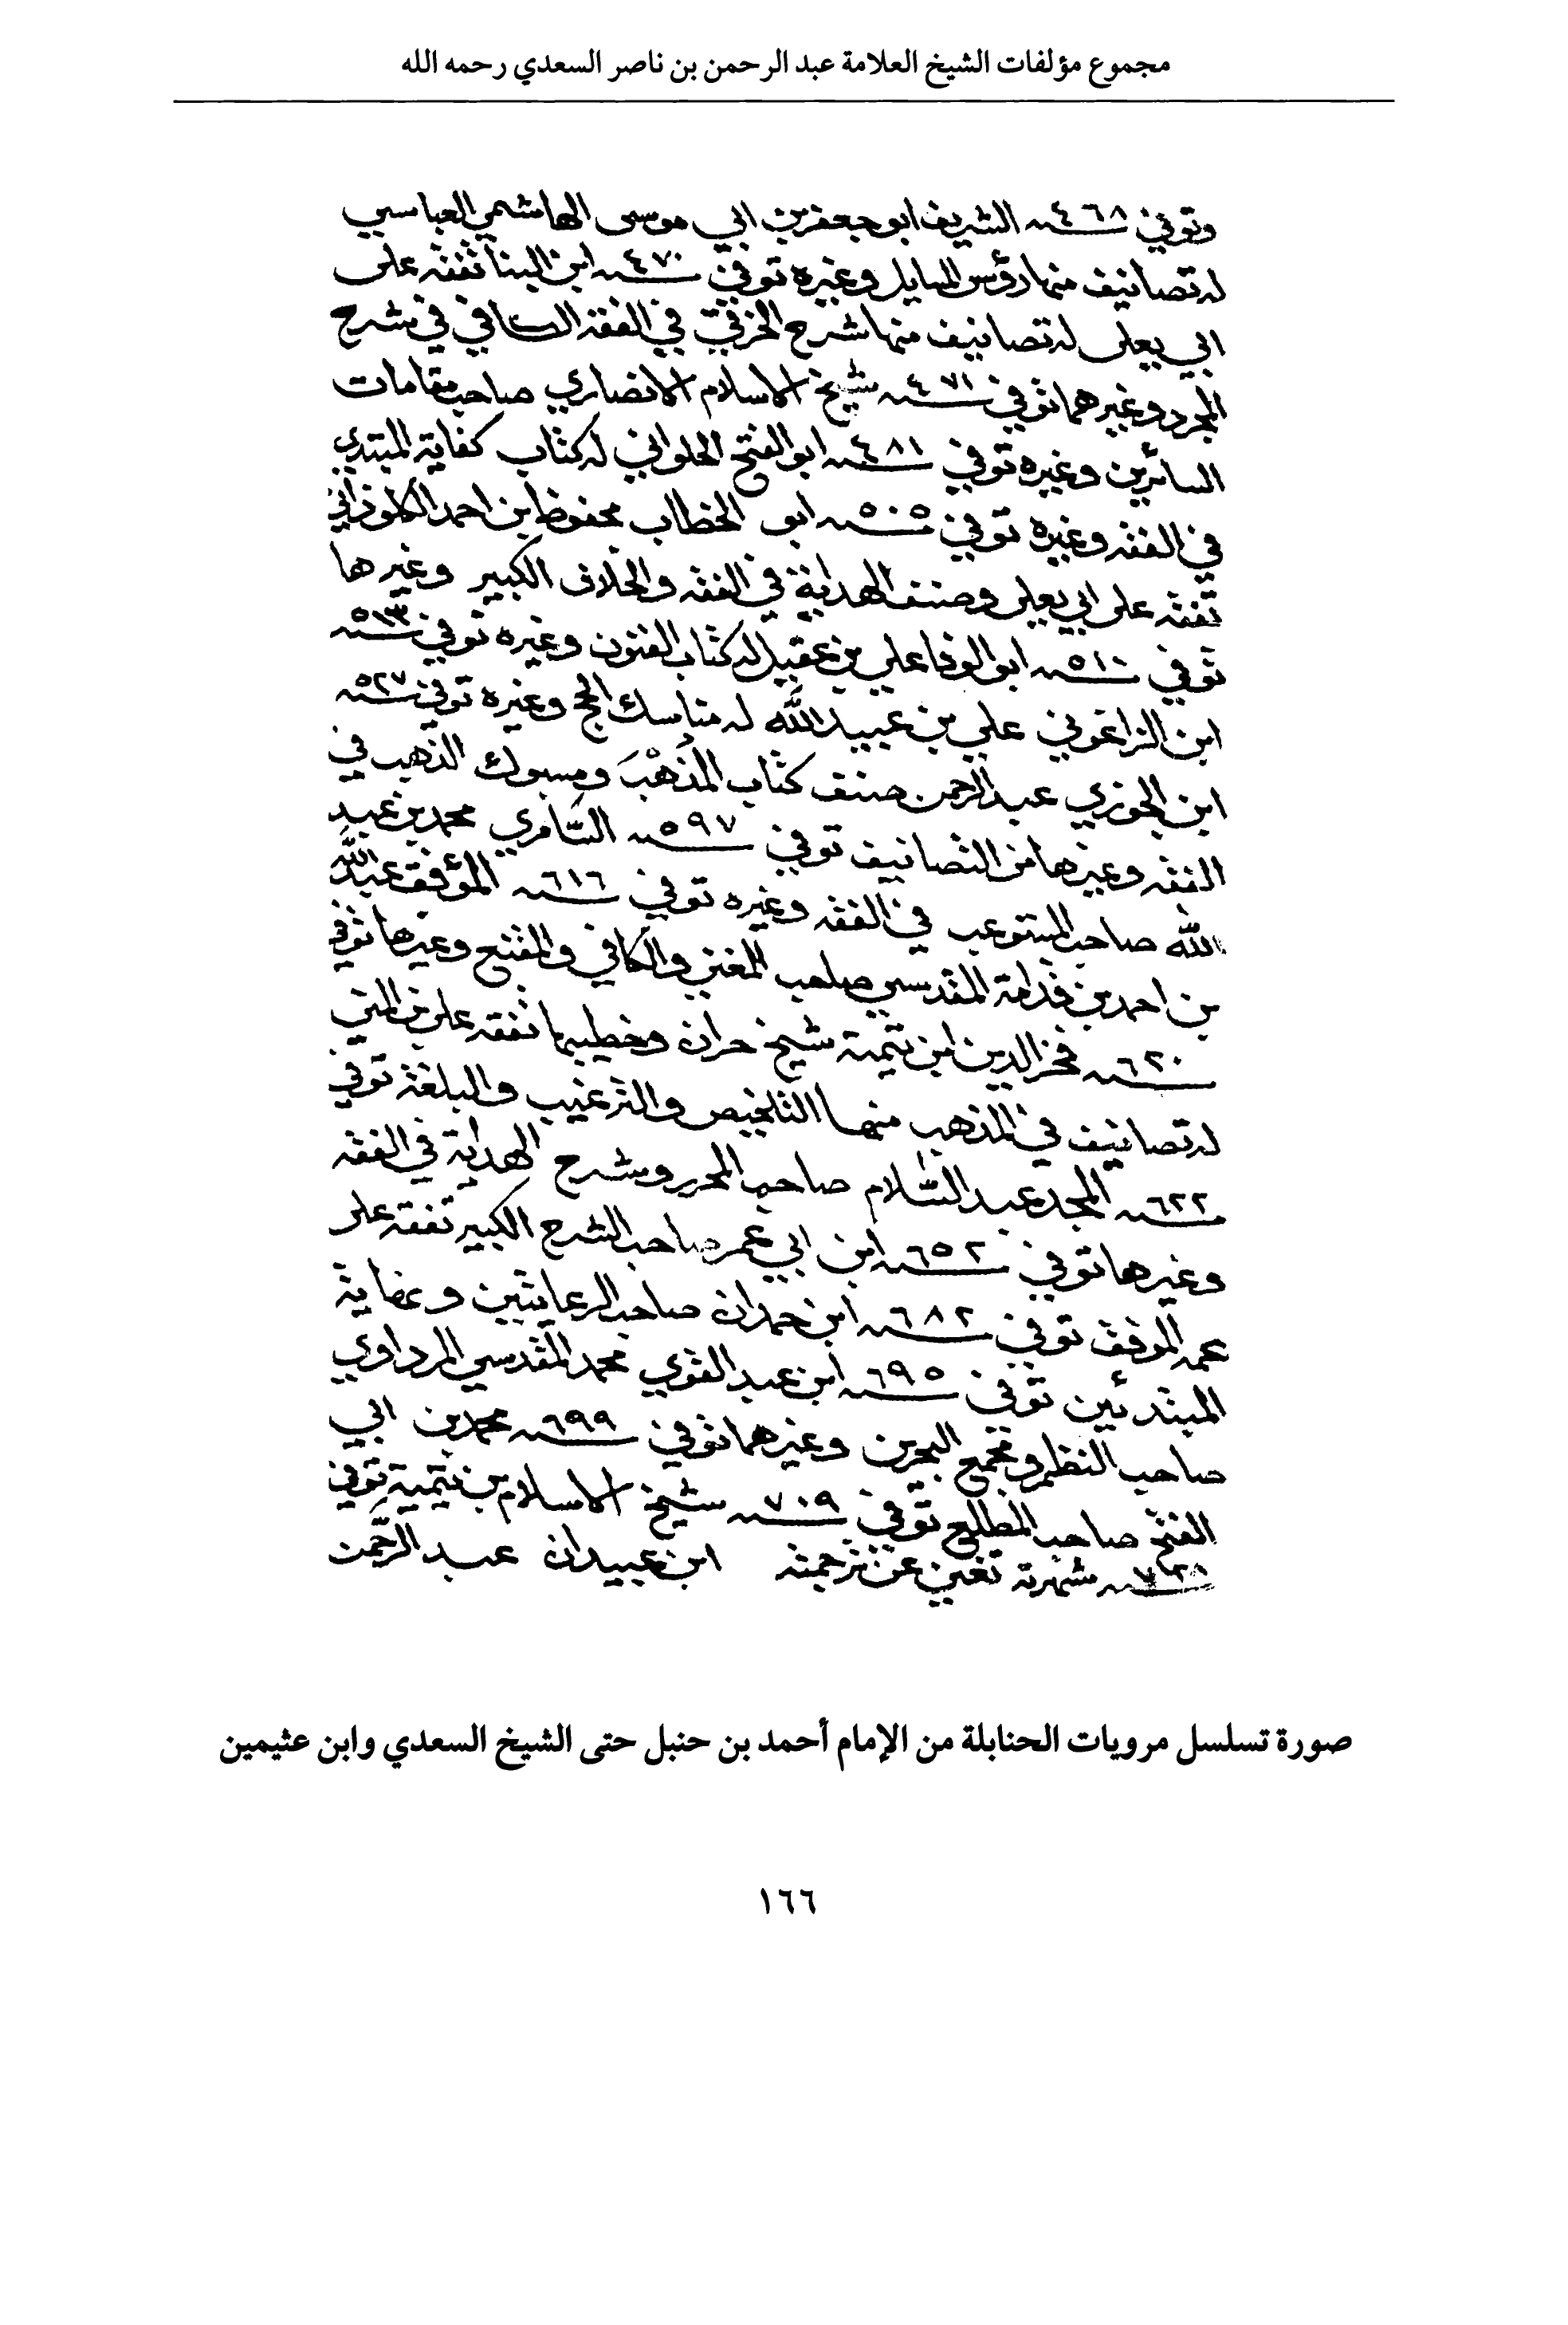 مجموع مؤلفات الشيخ العلامة عبد الرحمن بن ناصر السعدي رحمه الله
وتوفي ٤٦٨سنه الشريف ابو جعفر بن ابي موسى الهاشمي العباسي
له تصانيف منها رؤس المسايل وغيره توفي ٤٧٠سنه ابن البنا تفقه على
ابي يعلى له تصانيف منها شرح الخرقي في الفقه الكافي في شرح
المجرد وغيرهما توفي ٤٧١سنه شيخ الاسلام الانصاري صاحب مقامات
السائرين وغيره توفي ٤٨١سنه ابو الفتح الحلواني له كتاب كفاية المبتدي
في الفقه وغيره توفي ٥٠٥سنه ابو الخطاب محفوظ بن احمد الكلوذاني
تفقه على ابي يعلى وصنف الهداية في الفقه والخلاف الكبير وغيرها
توفي ٥١٠سنه ابو الوفا علي بن عقيل له كتاب الفنون وغيره توفي ٥١٣سنه
ابن الزاغوني علي بن عبيد الله له مناسك الحج وغيره توفي ٥٢٧سنه
ابن الجوزي عبد الرحمن صنف كتاب المُذْهَبَ ومسبوك الذهب في
الفقه وغيرها من التصانيف توفي ٥٩٧سنه السَّامري محمد بن عبد
الله صاحب المستوعب في الفقه وغيره توفي ٦١٦سنه الموفق عبد الله
بن احمد بن قدامة المقدسي صاحب المغني والكافي والمقنع وغيرها توفي
٦٢٠سنه فخر الدين ابن تيمية شيخ حران وخطيبها تفقه على بن المني
له تصانيف في المذهب منها التلخيص والترغيب والبلغة توفي
٦٢٢سنه المجد عبد السَّلام صاحب المحرر وشرح الهداية في الفقه
وغيرها توفي ٦٥٢سنه ابن ابي عمر صاحب الشرح الكبير تفقه على
عمه الموفق توفي ٦٨٢سنه ابن حمدان صاحب الرعايتين وغاية
المبتدئين توفي ٦٩٥سنه ابن عبد القوي محمد المقدسي المرداوي
صاحب النظم ومجمع البحرين وغيرهما توفي ٦٩٩سنه محمد بن ابي
الفتح صاحب المطلع توفي ٧٠٩سنه شيخ الاسلام بن تيمية توفي
٧٢٨سنه شهرته تغني عن ترجمته ابن عبيدان عبد الرَّحمن
صورة تسلسل مرويات الحنابلة من الإمام أحمد بن حنبل حتى الشيخ السعدي وابن عثيمين
١٦٦